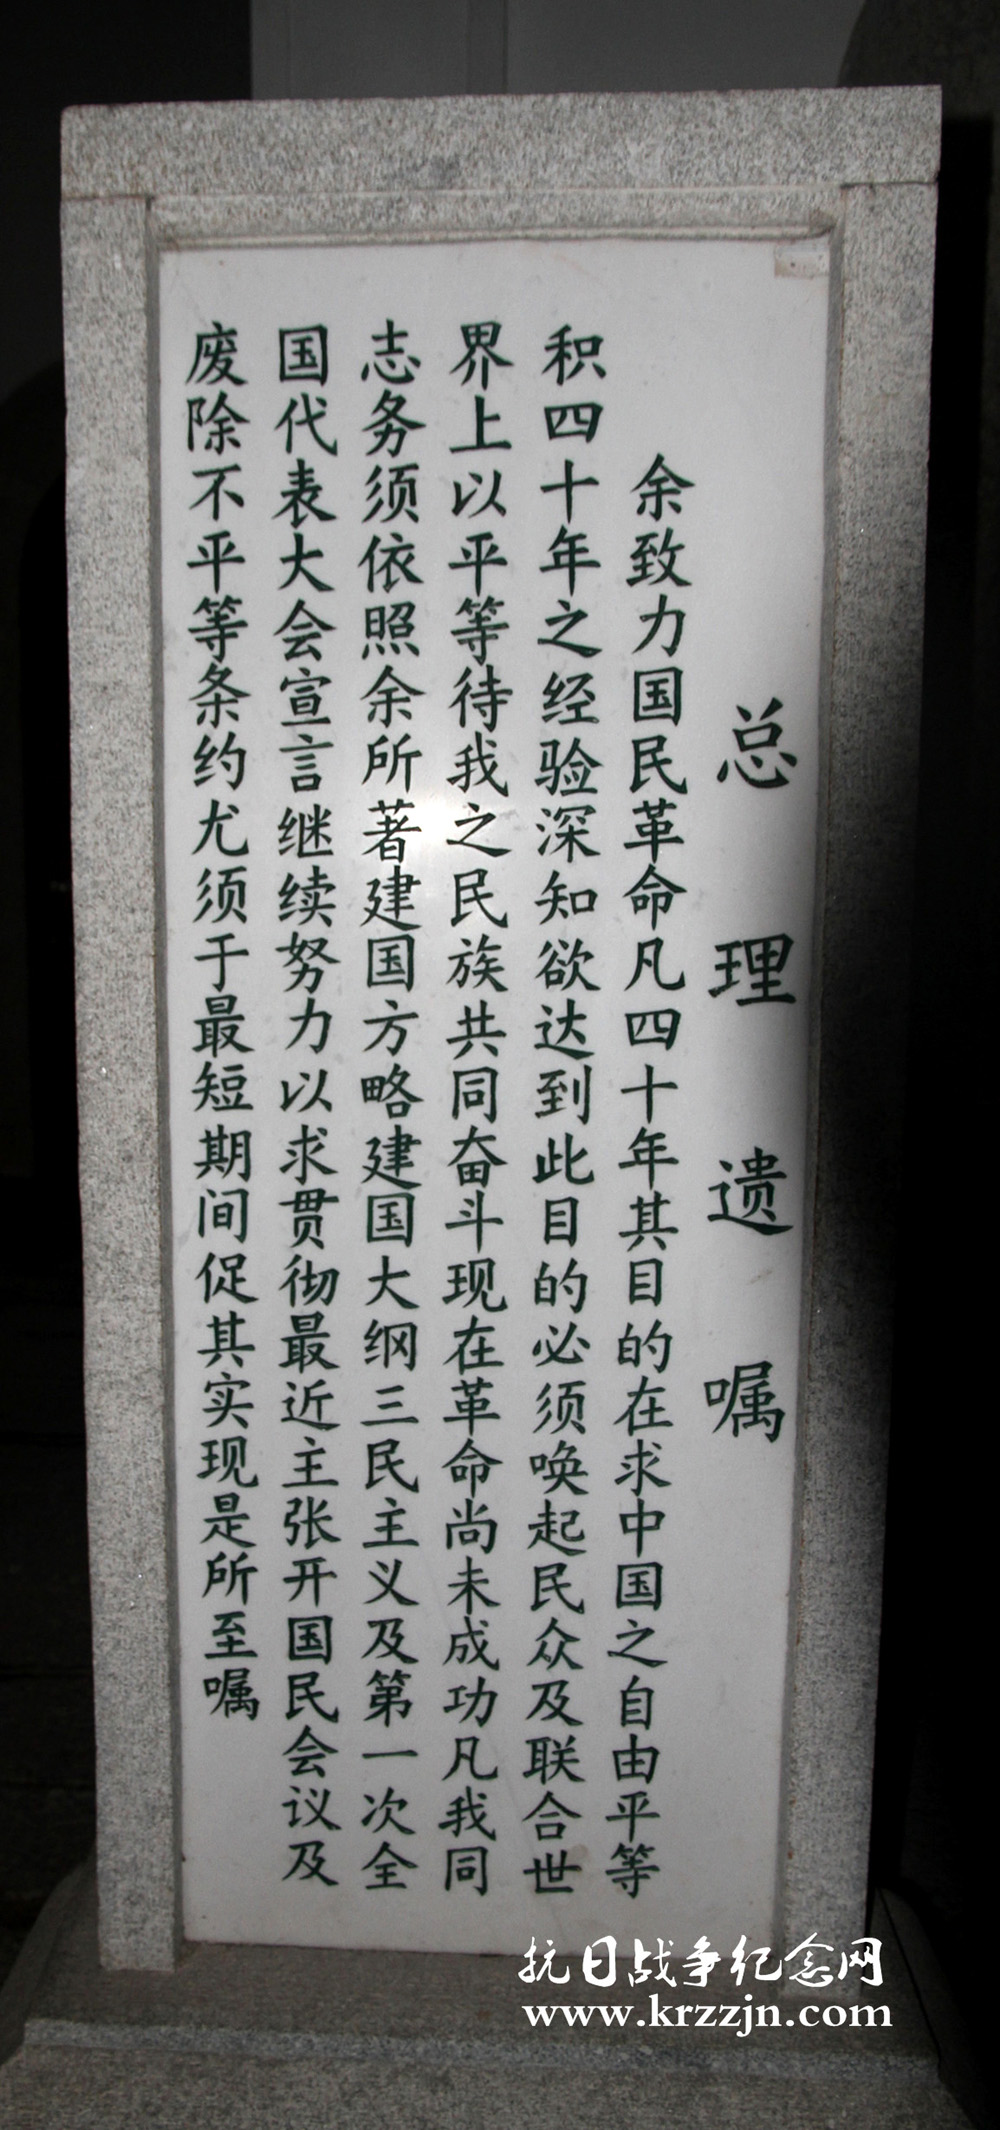 总理遗嘱
余致力国民革命凡四十年其目的在求中国之自由平等
积四十年之经验深知欲达到此目的必须唤起民众及联合世
界上以平等待我之民族共同奋斗现在革命尚未成功凡我同
志务须依照余所著建国方略建国大纲三民主义及第一次全
国代表大会宣言继续努力以求贯彻最近主张开国民会议及
废除不平等条约尤须于最短期间促其实现是所至嘱
抗日战争纪念网
www.krzzjn.com